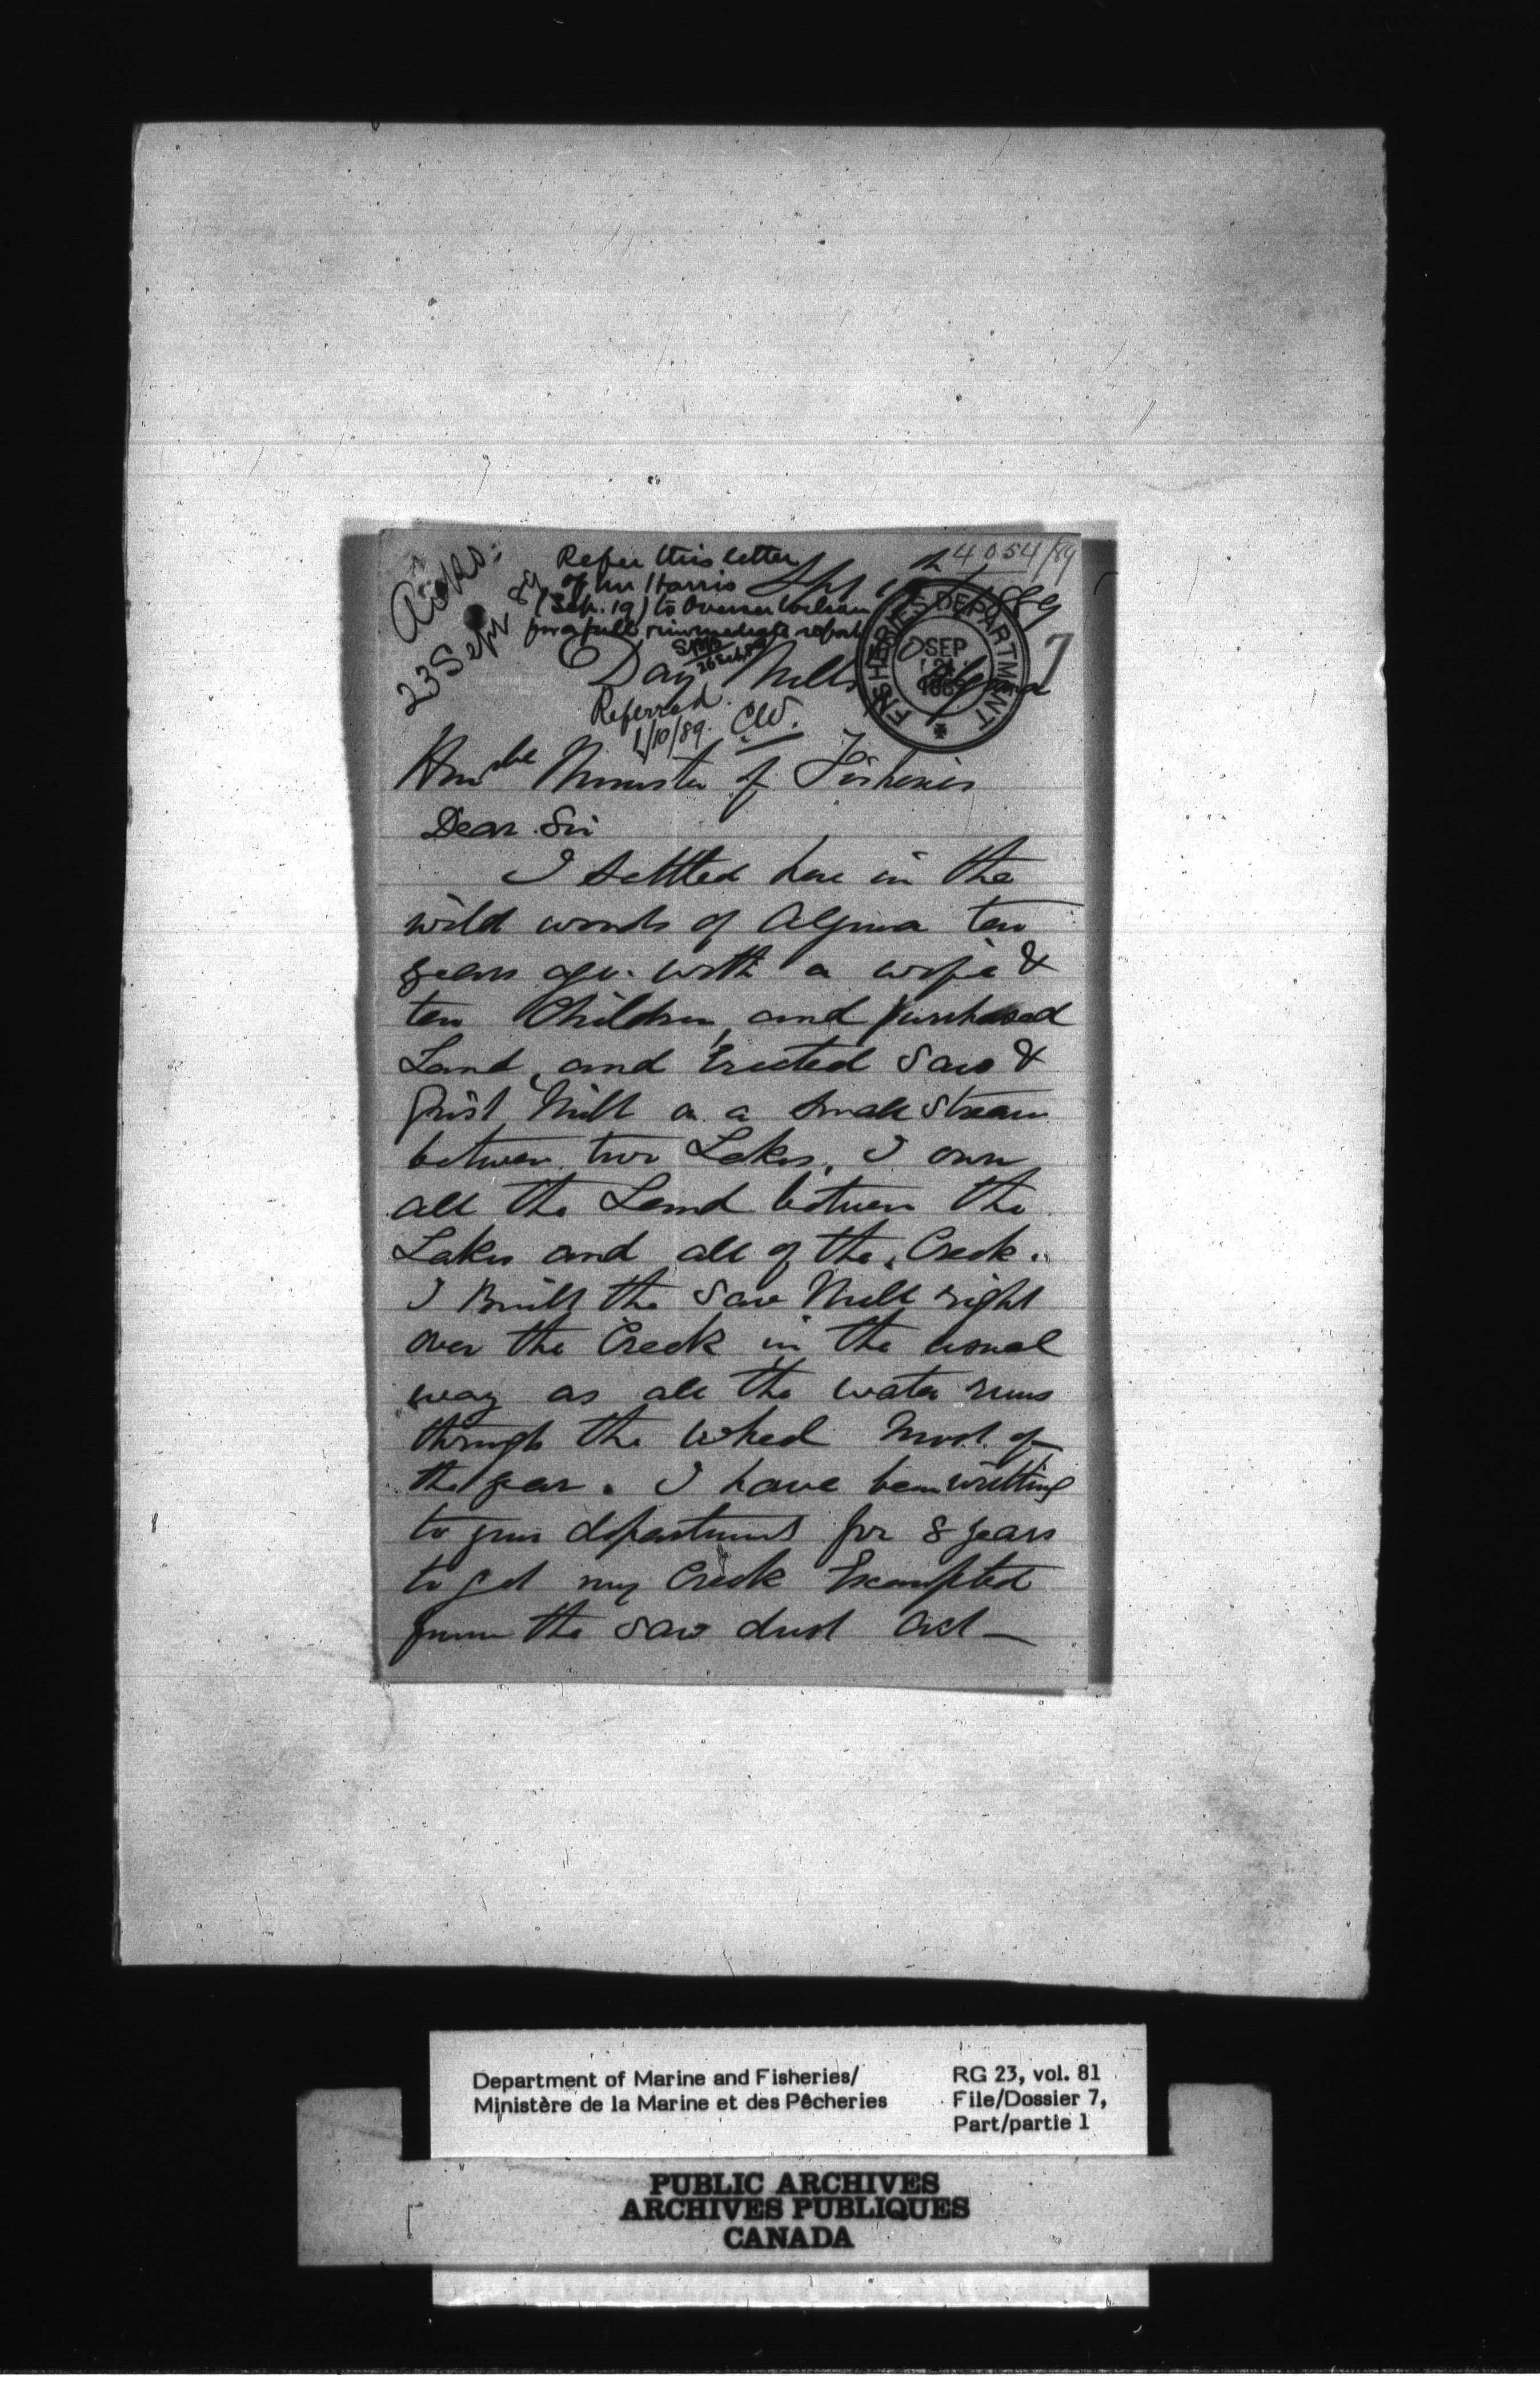 4054/89
Ackd.
23 Sepr 89
Refer this letter
of Mr Harris
(Sep. 19) to Overseer Wilson
for a full & immediate report
26 Sep 89
Sept 1889
FISHERIES DEPARTMENT
SEP
21
7
Day Mills Algoma
Referred.
1/10/89. CW.
Honble Minister of Fisheries
Dear Sir
I settled here in the
wild woods of Algoma ten
years ago. with a wife &
ten Children, and purchased
Land, and Erected Saw &
Grist Mill on a small Stream
between two Lakes, I own
all the Land between the
Lakes and all of the Creek.
I Built the Saw Mill right
over the Creek in the usual
way as all the water runs
through the Wheel Most of
the year. I have been writting
to your department for 8 years
to get my Creek Exempted
from the Saw dust Act —
Department of Marine and Fisheries/
Ministère de la Marine et des Pêcheries
RG 23, vol. 81
File/Dossier 7,
Part/partie 1
PUBLIC ARCHIVES
ARCHIVES PUBLIQUES
CANADA